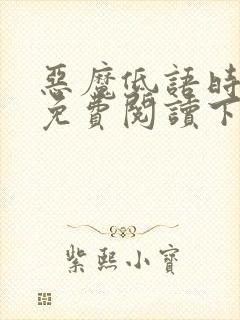 惡魔低語時
免費閱讀下
紫熙小寶